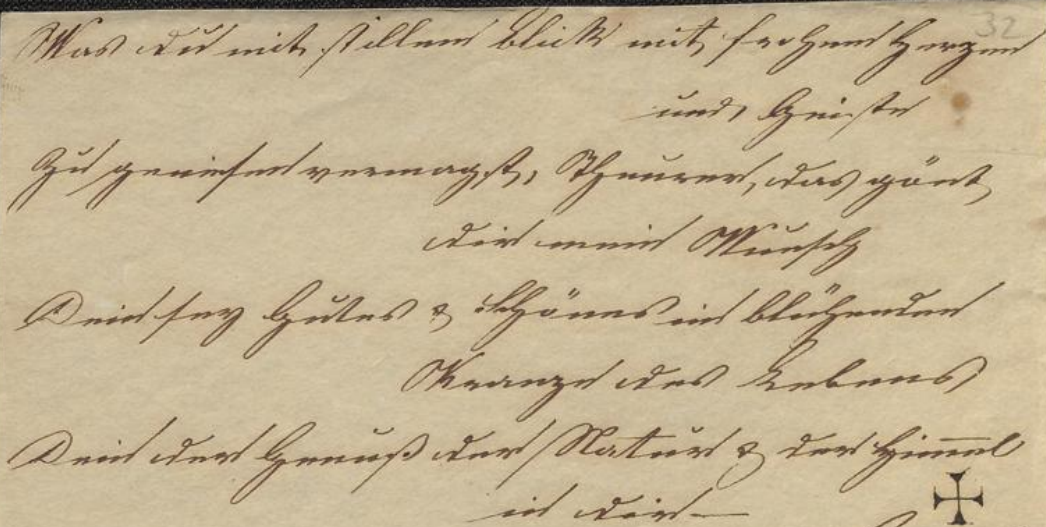 32
Was du mit stillem Blick mit frohem Herzen
und Geiste
Zu geniesen vermagst, Theurer, das gönt
dir mein Wunsch
Dein sey Gutes & Schönes im blühenden
Kranze des Lebens
Dein der Genuß der Natur & der Him̅el
in dir—